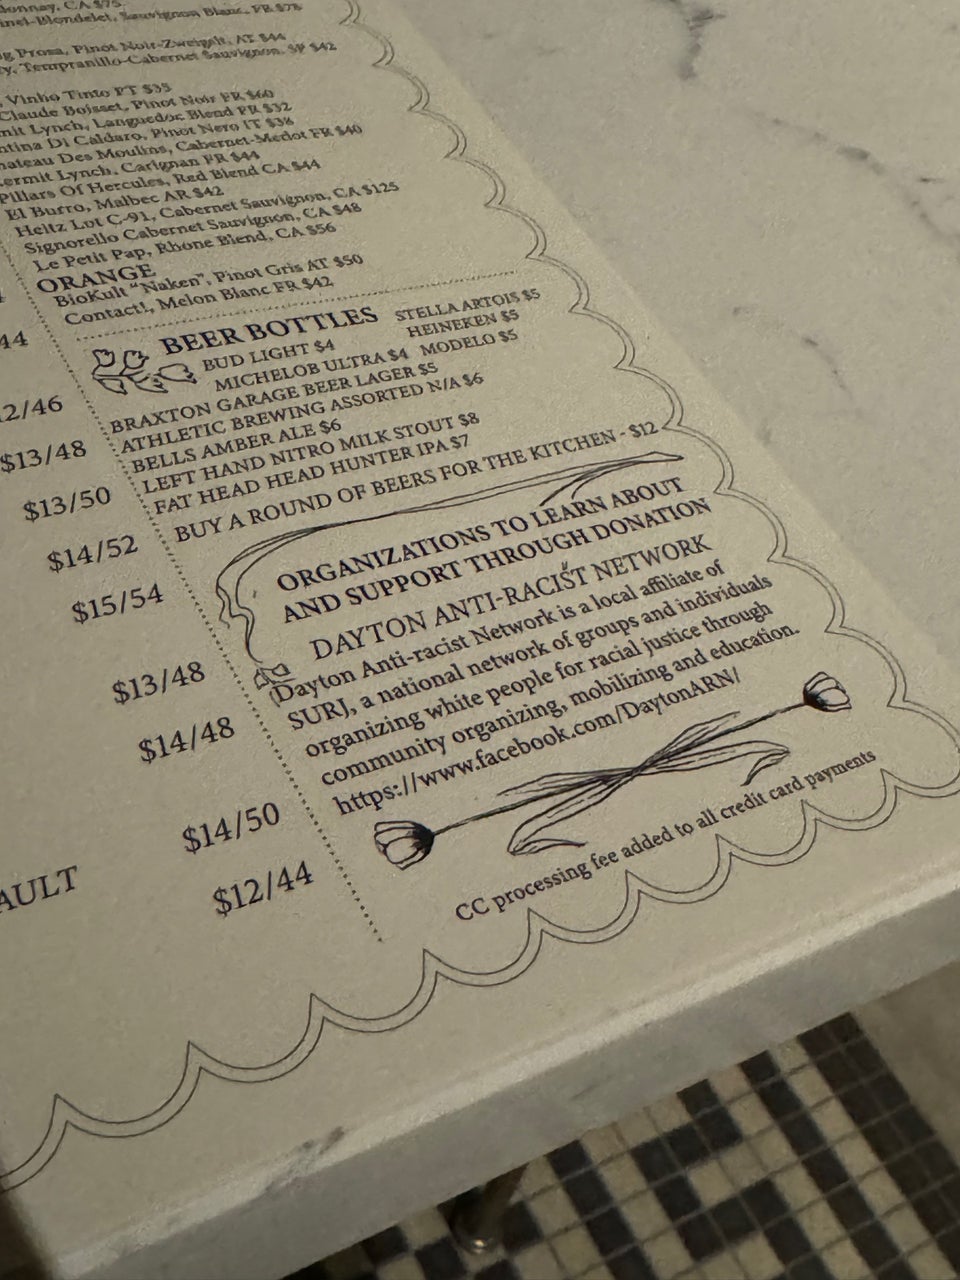 donnay, CA $75
inel-Blondelet, Sauvignon Blanc, FR $78
Prosa, Pinot Noir-Zweigelt, AT $44
Tempranillo-Cabernet Sauvignon, SP $42
Vinho Tinto PT $35
Claude Boisset, Pinot Noir FR $60
mit Lynch, Languedoc Blend FR $32
ntina Di Caldaro, Pinot Nero IT $38
hateau Des Moulins, Cabernet-Merlot FR $40
Kermit Lynch, Carignan FR $44
Pillars Of Hercules, Red Blend CA $44
El Burro, Malbec AR $42
Heitz Lot C-91, Cabernet Sauvignon, CA $125
Signorello Cabernet Sauvignon, CA $48
Le Petit Pap, Rhone Blend, CA $56
ORANGE
BioKult "Naken", Pinot Gris AT $50
Contact!, Melon Blanc FR $42
BEER BOTTLES
STELLA ARTOIS $5
BUD LIGHT $4 HEINEKEN $5
MICHELOB ULTRA $4 MODELO $5
BRAXTON GARAGE BEER LAGER $5
ATHLETIC BREWING ASSORTED N/A $6
BELLS AMBER ALE $6
LEFT HAND NITRO MILK STOUT $8
FAT HEAD HEAD HUNTER IPA $7
BUY A ROUND OF BEERS FOR THE KITCHEN - $12
ORGANIZATIONS TO LEARN ABOUT
AND SUPPORT THROUGH DONATION
DAYTON ANTI-RACIST NETWORK
Dayton Anti-racist Network is a local affiliate of
SURJ, a national network of groups and individuals
organizing white people for racial justice through
community organizing, mobilizing and education.
https://www.facebook.com/DaytonARN/
CC processing fee added to all credit card payments
44
2/46
$13/48
$13/50
$14/52
$15/54
$13/48
$14/48
$14/50
AULT $12/44